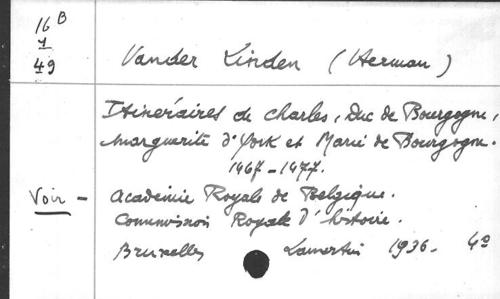 16 B
1
49
Vander Linden (Herman)
Itinéraires de Charles, Duc de Bourgogne,
Marguerite d'York et Marie de Bourgogne.
1467-1477.
Voir - Académie Royale de Belgique.
Commission Royale d'histoire.
Bruxelles Lamertin 1936. 4º